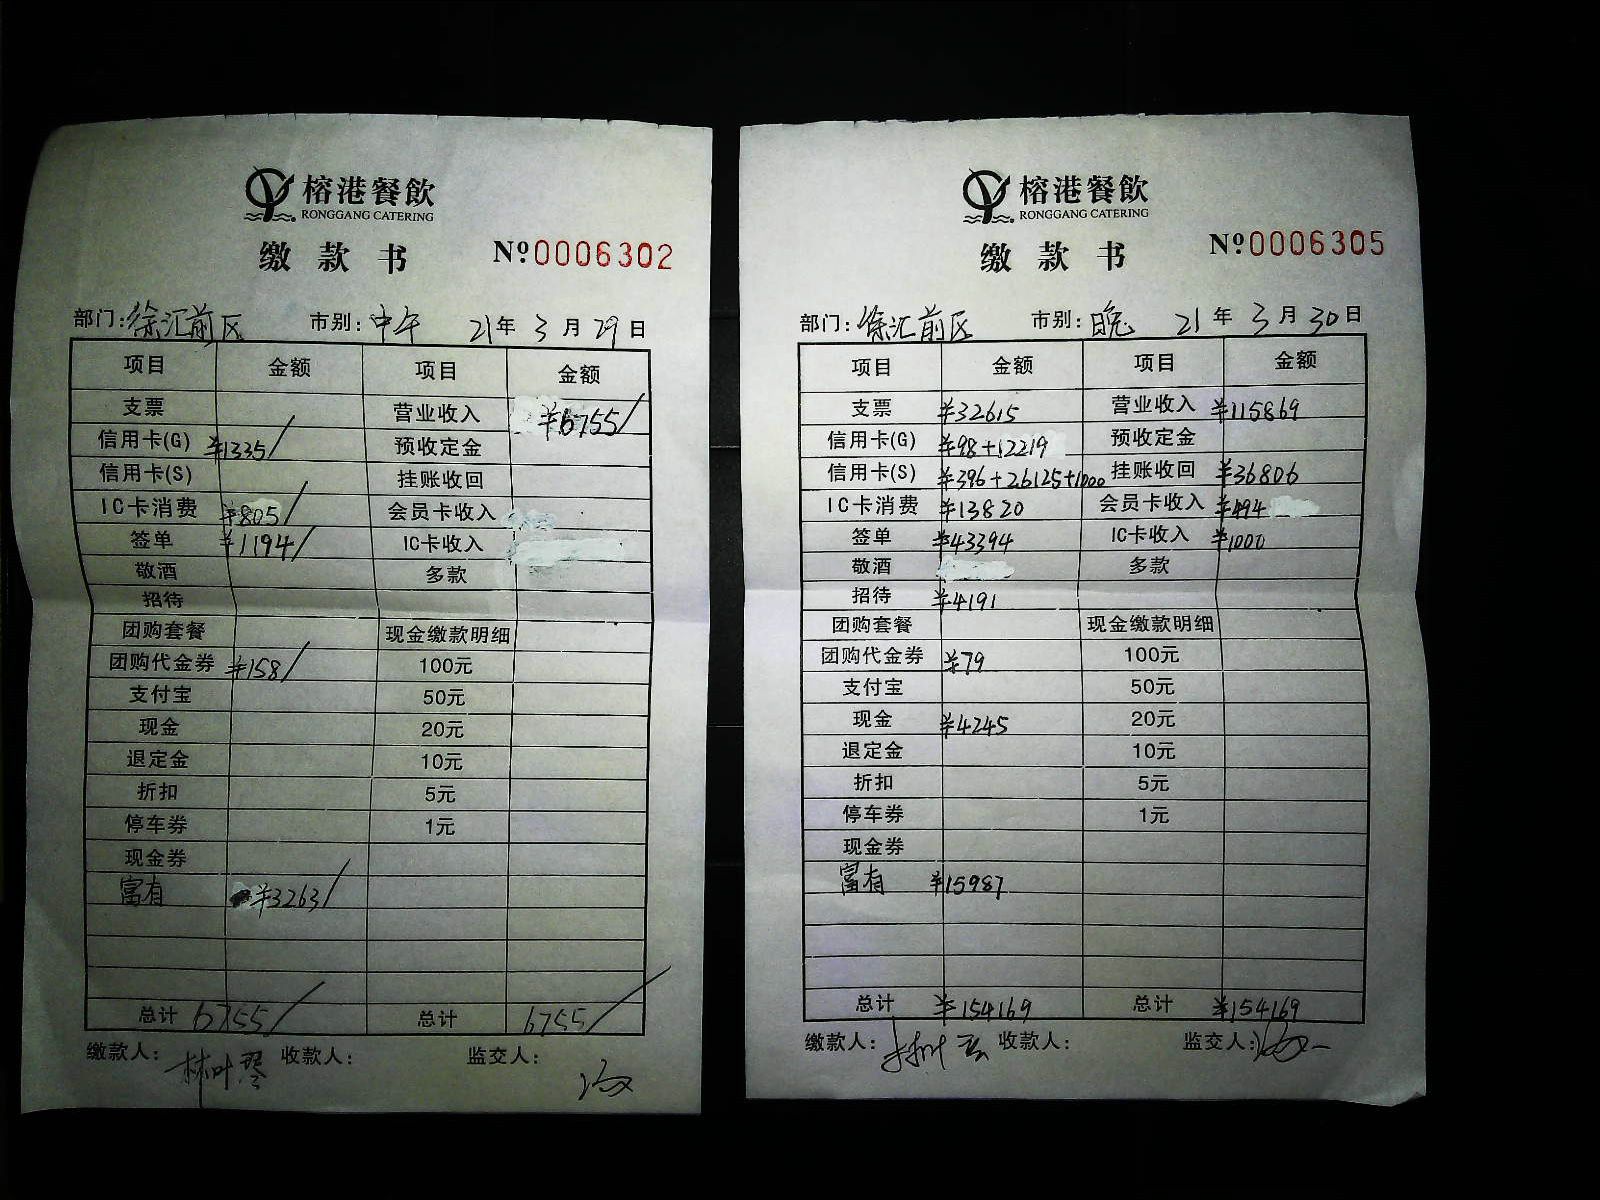 榕港餐飲
RONGGANG CATERING
缴款书 Nº0006302
部门:徐汇前区 市别:中午 21年3月29日
项目 金额 项目 金额
支票 营业收入 ¥6755/
信用卡(G) ¥1335/ 预收定金
信用卡(S) 挂账收回
IC卡消费 ¥805/ 会员卡收入
签单 ¥1194/ IC卡收入
敬酒 多款
招待
团购套餐 现金缴款明细
团购代金券 ¥158/ 100元
支付宝 50元
现金 20元
退定金 10元
折扣 5元
停车券 1元
现金券
富有 ¥3263/
总计 6755/ 总计 6755/
缴款人: 林叶琴 收款人: 监交人:
榕港餐飲
RONGGANG CATERING
缴款书 Nº0006305
部门:徐汇前区 市别:晚 21年3月30日
项目 金额 项目 金额
支票 ¥32615 营业收入 ¥115869
信用卡(G) ¥98+12219 预收定金
信用卡(S) ¥396+26125+1000 挂账收回 ¥36806
IC卡消费 ¥13820 会员卡收入 ¥494
签单 ¥43394 IC卡收入 ¥1000
敬酒 多款
招待 ¥4191
团购套餐 现金缴款明细
团购代金券 ¥79 100元
支付宝 50元
现金 ¥4245 20元
退定金 10元
折扣 5元
停车券 1元
现金券
富有 ¥15987
总计 ¥154169 总计 ¥154169
缴款人: 收款人: 监交人: